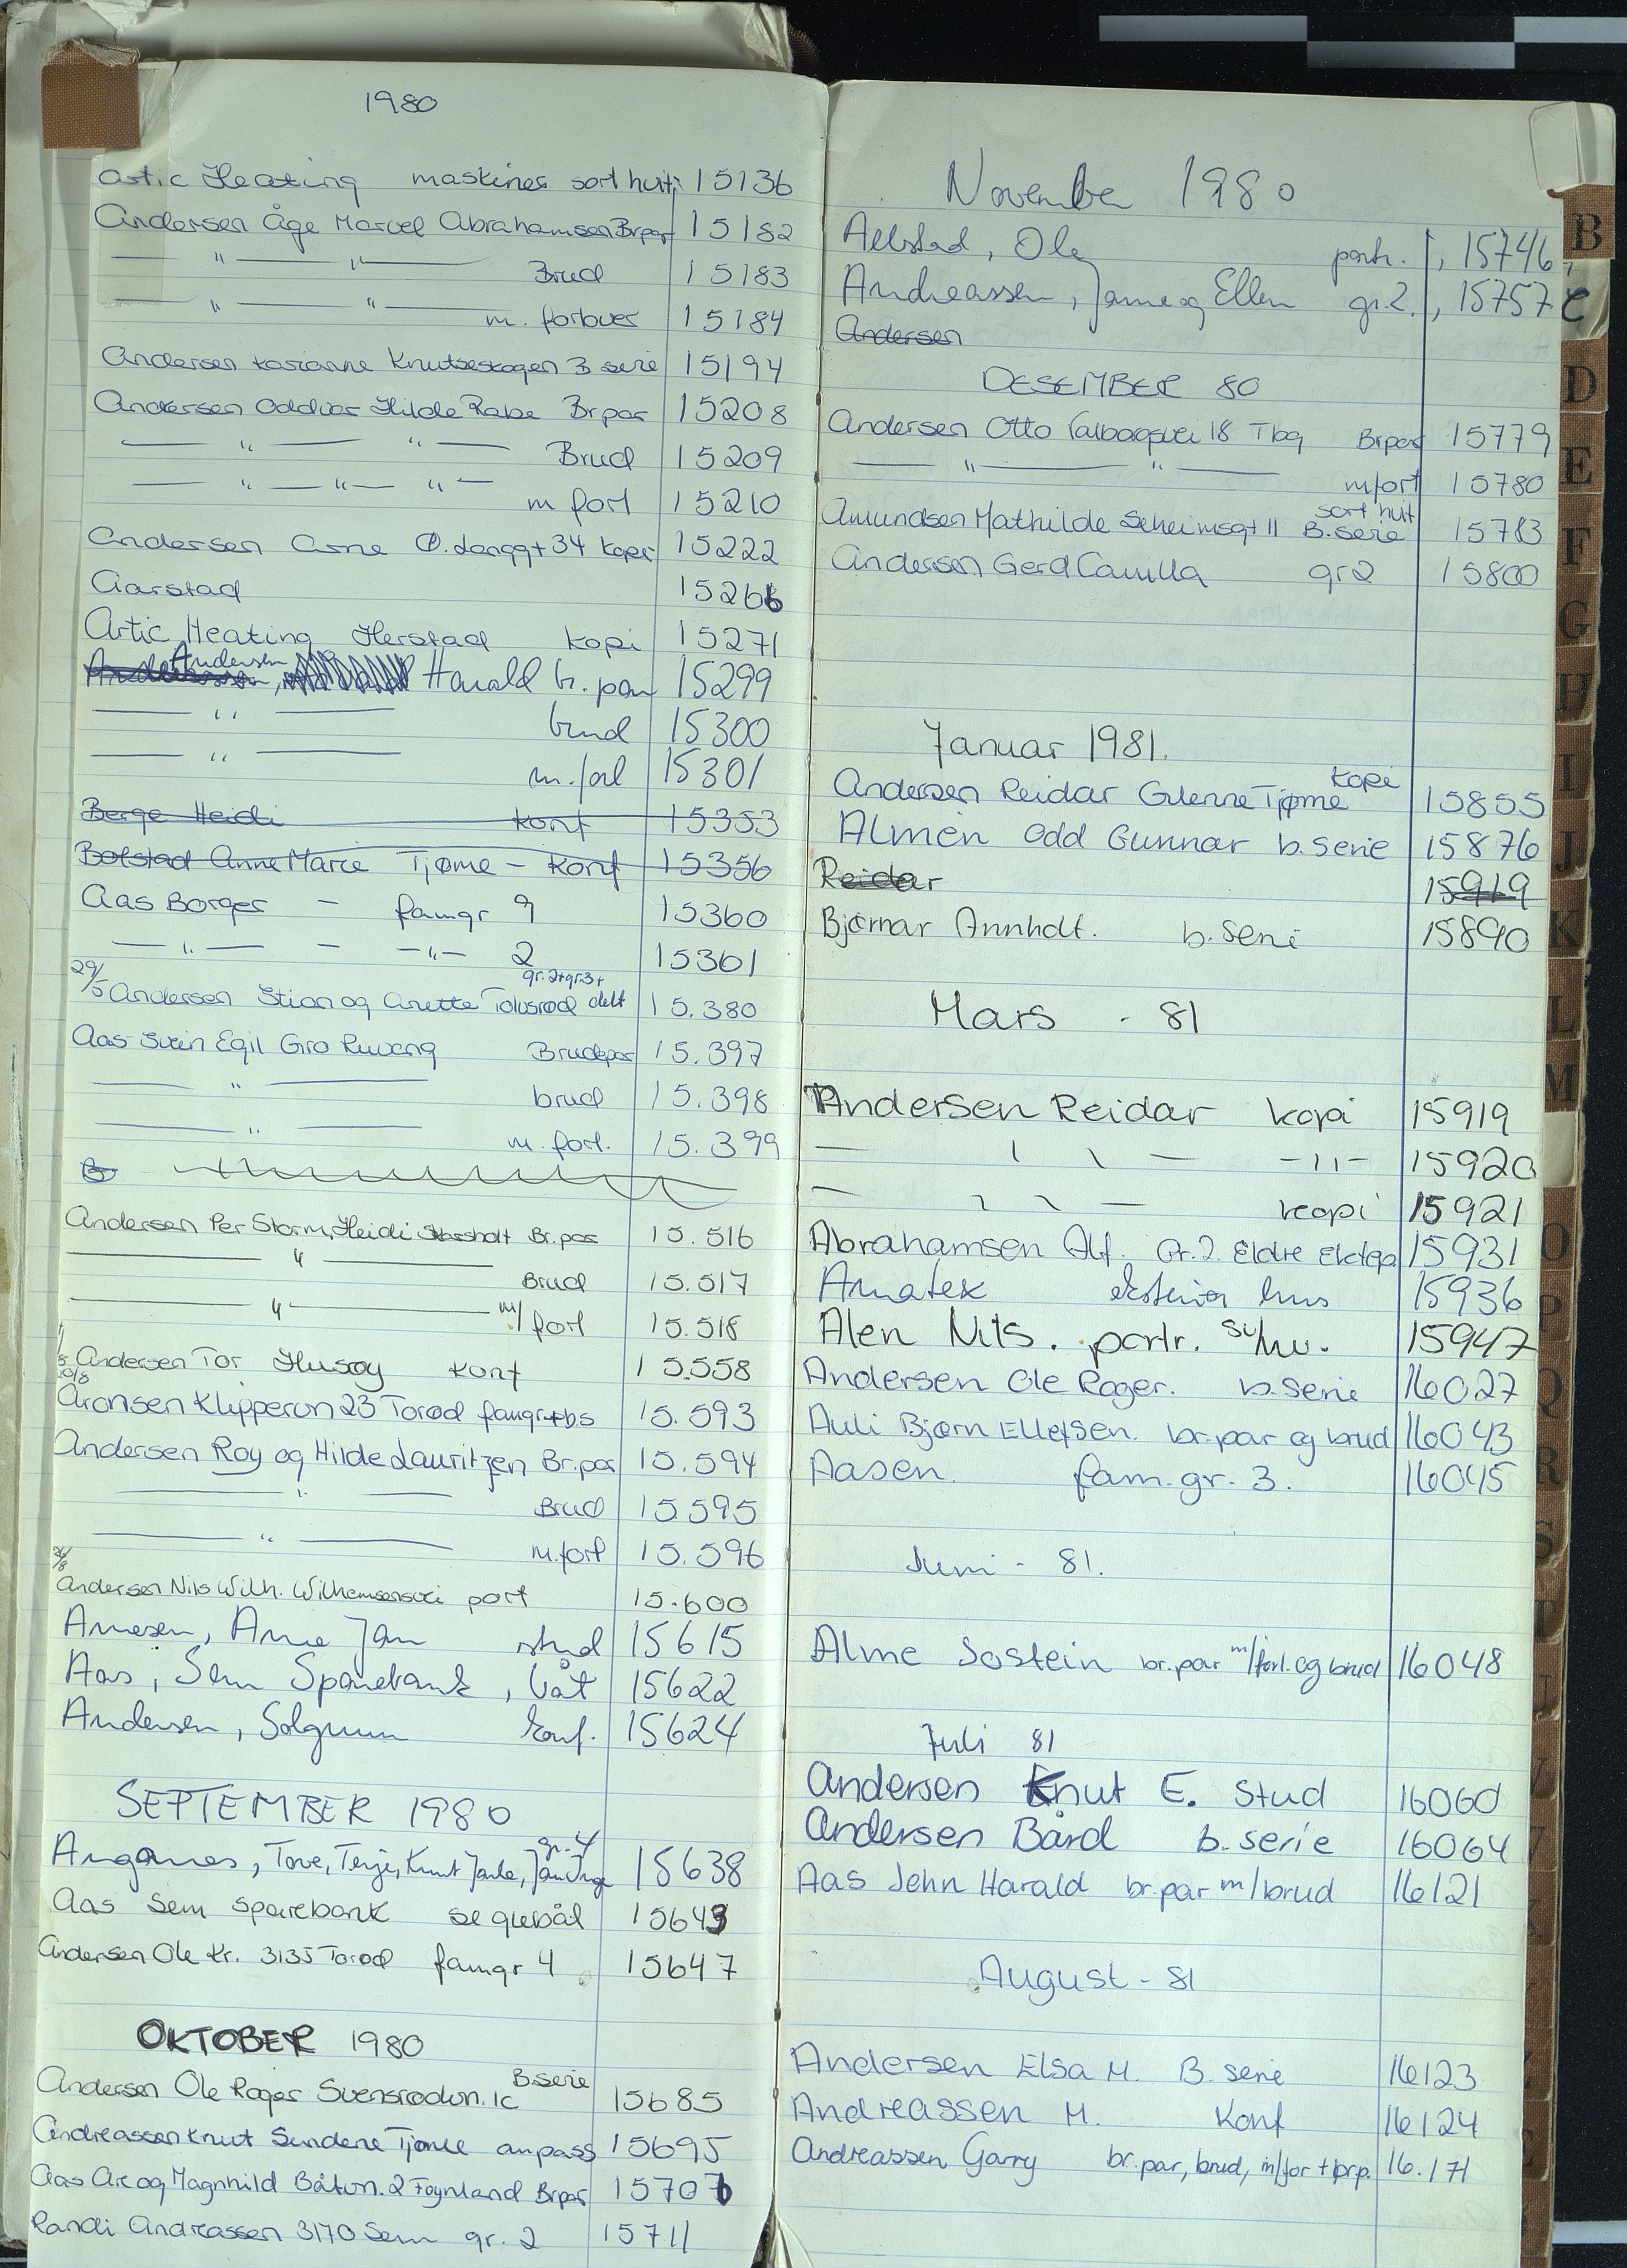 1980
Artic Heating maskiner sort hvitt 15136
Andersen Åge Marcel Abrahamsen Brpar 15182
— " — " — Brud 15183
— " — " — m. forlover 15184
Andersen Karianne Knutseskogen 3 serie 15194
Andersen Oddvar Hilde Rabe Brpar 15208
— " — " — Brud 15209
— " — " — " — m forl 15210
Andersen Arne Ø. Langgt 34 kopi 15222
Aarstad 15266
Artic Heating Herstad kopi 15271
Andersen Harald br. par 15299
— " — brud 15300
— " — m. forl 15301
Berge Heidi konf 15353
Bolstad Anne Marie Tjøme - konf 15356
Aas Borger - famgr 9 15360
— " — - — " — 2 15361
29/5 Andersen Stian og Anette Tolvsrød gr.2+gr.3+ delt 15.380
Aas Svein Egil Gro Ruvang Brudepar 15.397
— " — brud 15.398
— " — m. forl. 15.399
B
Andersen Per Storm, Heidi Br.par 15.516
— " — Brud 15.517
— " — m/forl 15.518
Andersen Tor Husøy konf 15.558
Aronsen Klipperon 23 Torød famgr+bs 15.593
Andersen Roy og Hilde Lauritzen Br.par 15.594
— " — Brud 15.595
— " — m.forl 15.596
Andersen Nils Wilh. Wilhelmsensvei port 15.600
Arnesen, Arne Jan stud 15615
Aas, Sem Sparebank, båt 15622
Andersen, Solgunn konf. 15624
SEPTEMBER 1980
Tove, Terje, Knut Jarle, Jan Inge gr. 4 15638
Aas Sem sparebank 15643
Andersen Ole Kr. 3135 Torød famgr 4 15647
OKTOBER 1980
Andersen Ole Roger Svensrødvn. 1c B.serie 15685
Andreassen Knut Sundene Tjøme anpass 15695
Aas Are og Magnhild Båtvn. 2 Føynland Brpar 15707
Randi Andreassen 3170 Sem gr. 2 15711
November 1980
Allstad, Ole portr. 15746
Andreassen, Janne og Ellen gr.2. 15757
Andersen
DESEMBER 80
Andersen Otto Valborgsvei 18 Tbg Brpar 15779
— " — " — m/forl 15780
Amundsen Mathilde Seheimsgt 11 sort hvit B.serie 15783
Andersen Gerd Camilla gr2 15800
Januar 1981.
Andersen Reidar Grenne Tjøme kopi 15855
Almèn Odd Gunnar b. serie 15876
Reidar 15919
Bjørnar Annholt. b. seri 15890
Mars - 81
Andersen Reidar kopi 15919
— " — - " - 15920
— " — kopi 15921
Abrahamsen Alf. Gr. 2. Eldre Ektep 15931
Amatex eksteriør hus 15936
Alen Nils. portr. sv/hv. 15947
Andersen Ole Roger. b. serie 16027
Auli Bjørn Ellefsen. br.par og brud 16043
Aasen. fam. gr. 3. 16045
Juni - 81.
Alme Jostein br.par m/forl. og brud 16048
Juli 81
Andersen Knut E. Stud 16060
Andersen Bård b. serie 16064
Aas John Harald br.par m/brud 16121
August - 81
Andersen Elsa M. B. serie 16123
Andreassen M. Konf 16124
Andreassen Garry br.par, brud, m/for + brp. 16.171
B
C
D
E
F
G
H
I
J
K
L
M
O
P
Q
R
S
T